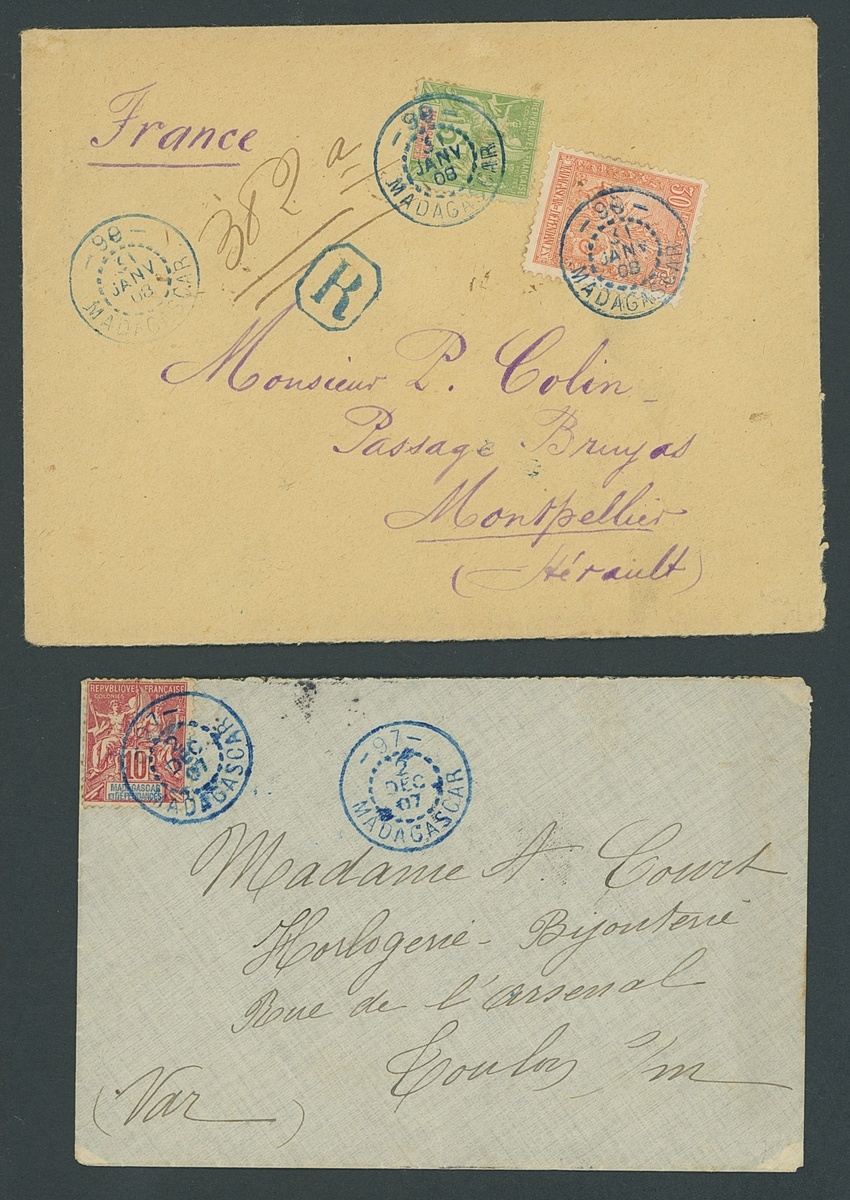 France
382 a
R
- 99 -
31
JANV
08
MADAGASCAR
REPUBLIQUE FRANCAISE
- 99 -
31
JANV
08
MADAGASCAR
30
- 99 -
31
JANV
08
MADAGASCAR
Monsieur P. Colin
Passage Bruyas
Montpellier
(Hérault)
REPVBLIQVE FRANÇAISE
COLONIES
10c
MADAGASCAR
ET DEPENDANCES
- 97 -
2
DEC
07
MADAGASCAR
- 97 -
2
DEC
07
MADAGASCAR
Madame A. Court
Horlogerie - Bijouterie
Rue de l'arsenal
Toulon s/m
(Var)